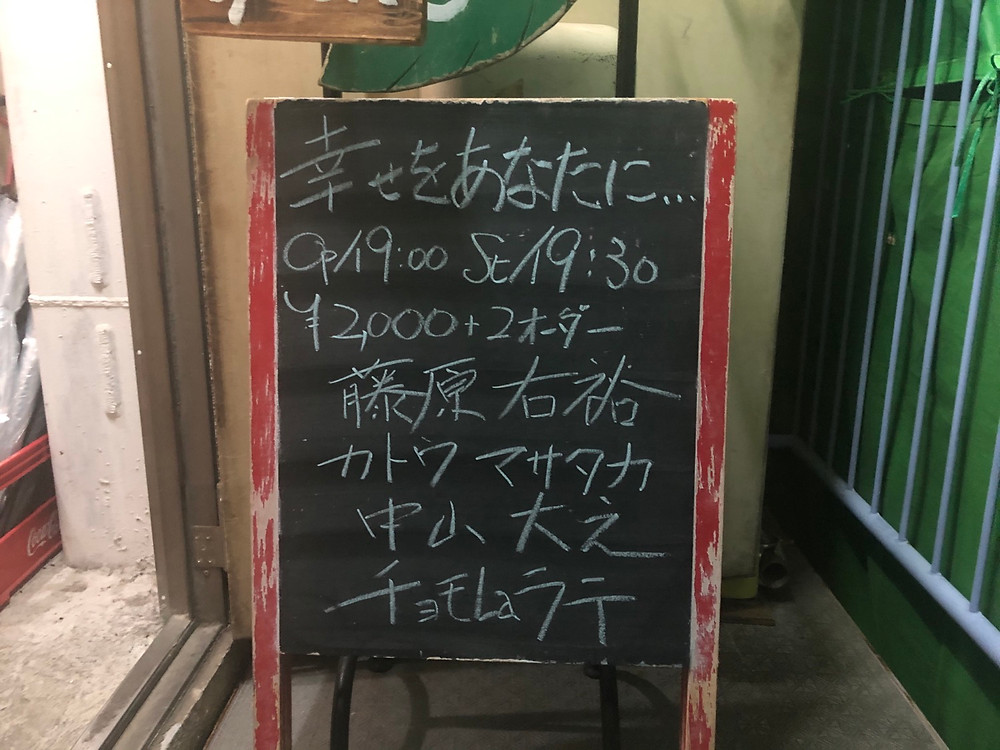 幸せをあなたに...
Op19:00 St19:30
¥2,000+2オーダー
藤原 右裕
カトウ マサタカ
中山 大之
チョモLaラテ
Coca-Cola